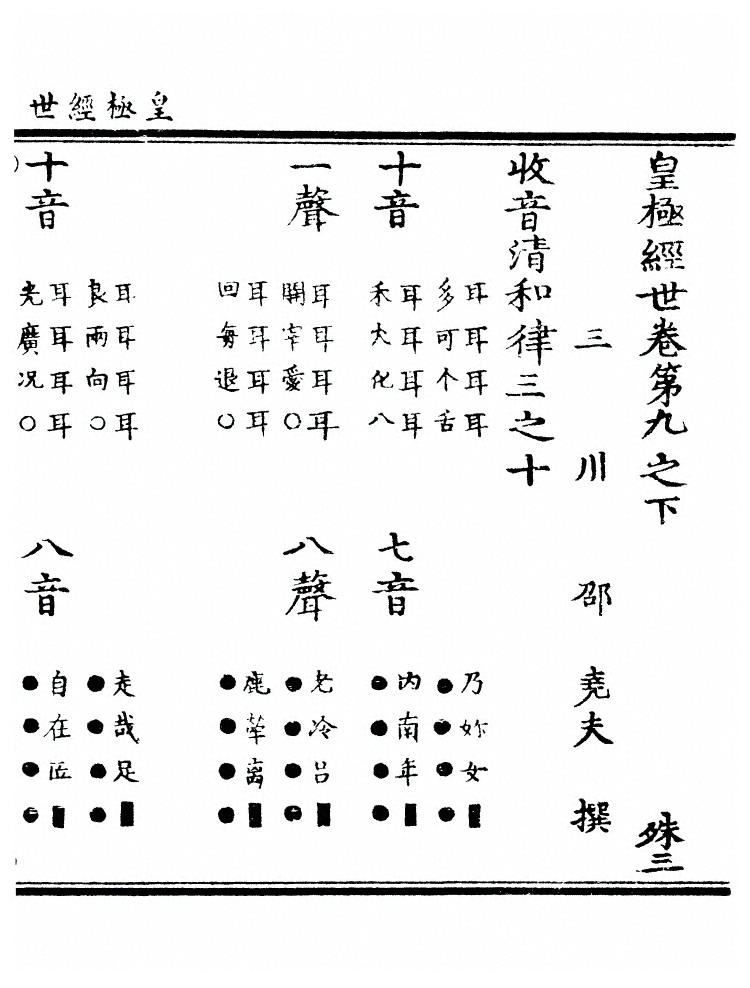 皇極經世
皇極經世卷第九之下 殊三
三川 邵堯夫 撰
收音清和律三之十
十音 七音
耳耳耳耳 乃妳女▮
多可个舌 ●●●●
耳耳耳耳 内南年▮
禾火化八 ●●●●
一聲 八聲
耳耳耳耳 老冷呂▮
開宰愛○ ●●●●
耳耳耳耳 鹿犖离▮
回每退○ ●●●●
十音 八音
耳耳耳耳 走哉足▮
良兩向○ ●●●●
耳耳耳耳 自在匠▮
光廣况○ ●●●●